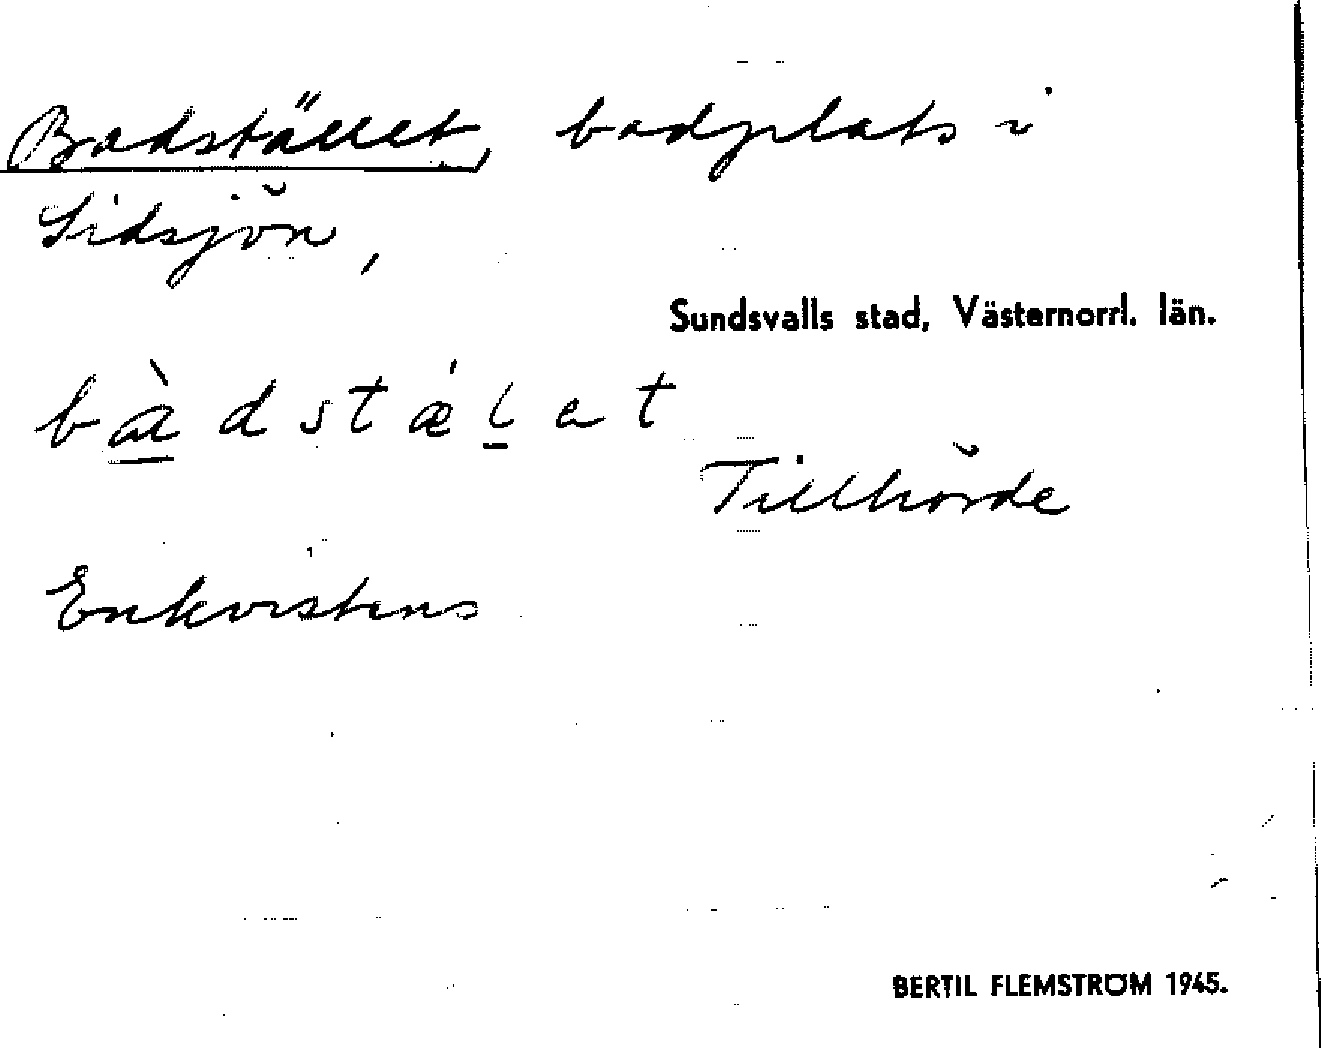 Badstället, badplats i
Sidsjön,
Sundsvalls stad, Västernorrl. län.
bàdstǽlet
Tillhörde
Enkvistens
BERTIL FLEMSTRÖM 1945.